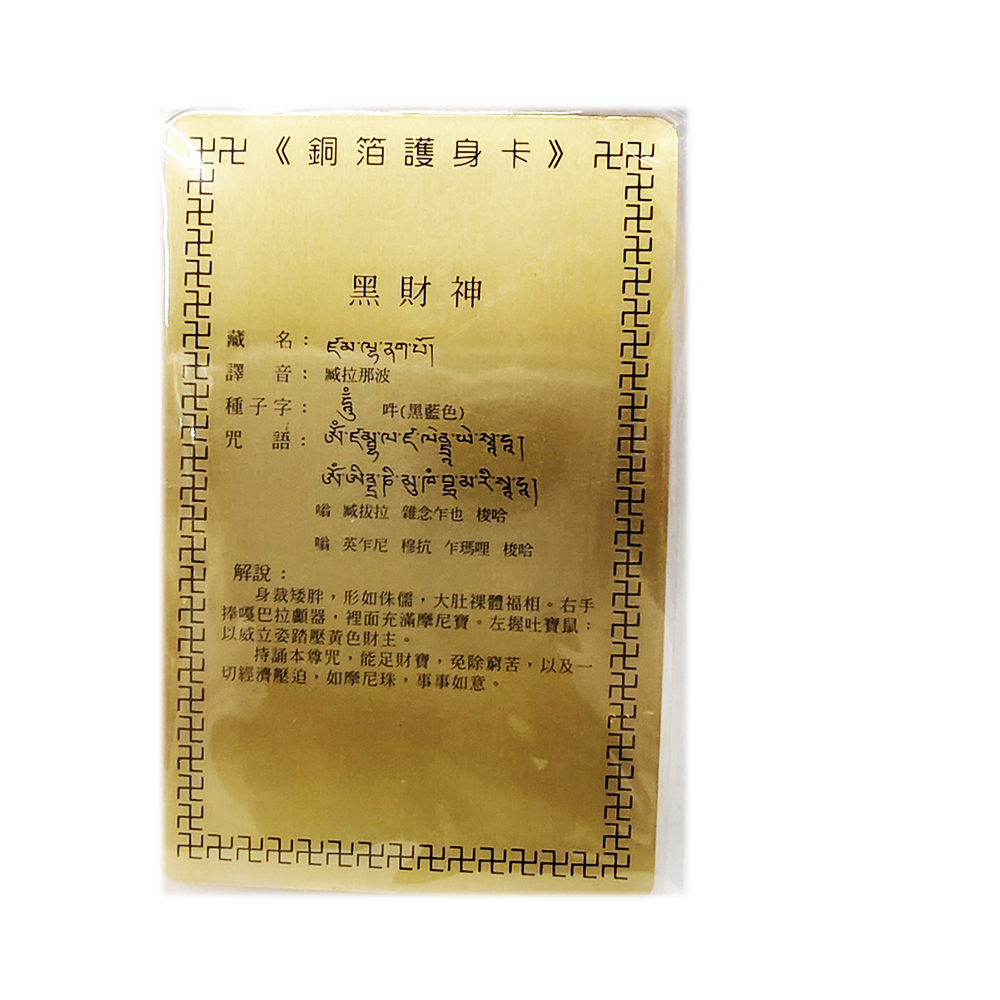 卍卍《銅箔護身卡》卍卍
黑財神
藏名：ཛམ་ལྷ་ནག་པོ།
譯音：臧拉那波
種子字：吽(黑藍色)
咒語：
嗡 臧拔拉 雜念乍也 梭哈
嗡 英乍尼 穆抗 乍瑪哩 梭哈
解說：
身裁矮胖，形如侏儒，大肚裸體福相。右手
捧嘎巴拉顱器，裡面充滿摩尼寶。左握吐寶鼠；
以威立姿踏壓黃色財主。
持誦本尊咒，能足財寶，免除窮苦，以及一
切經濟壓迫，如摩尼珠，事事如意。